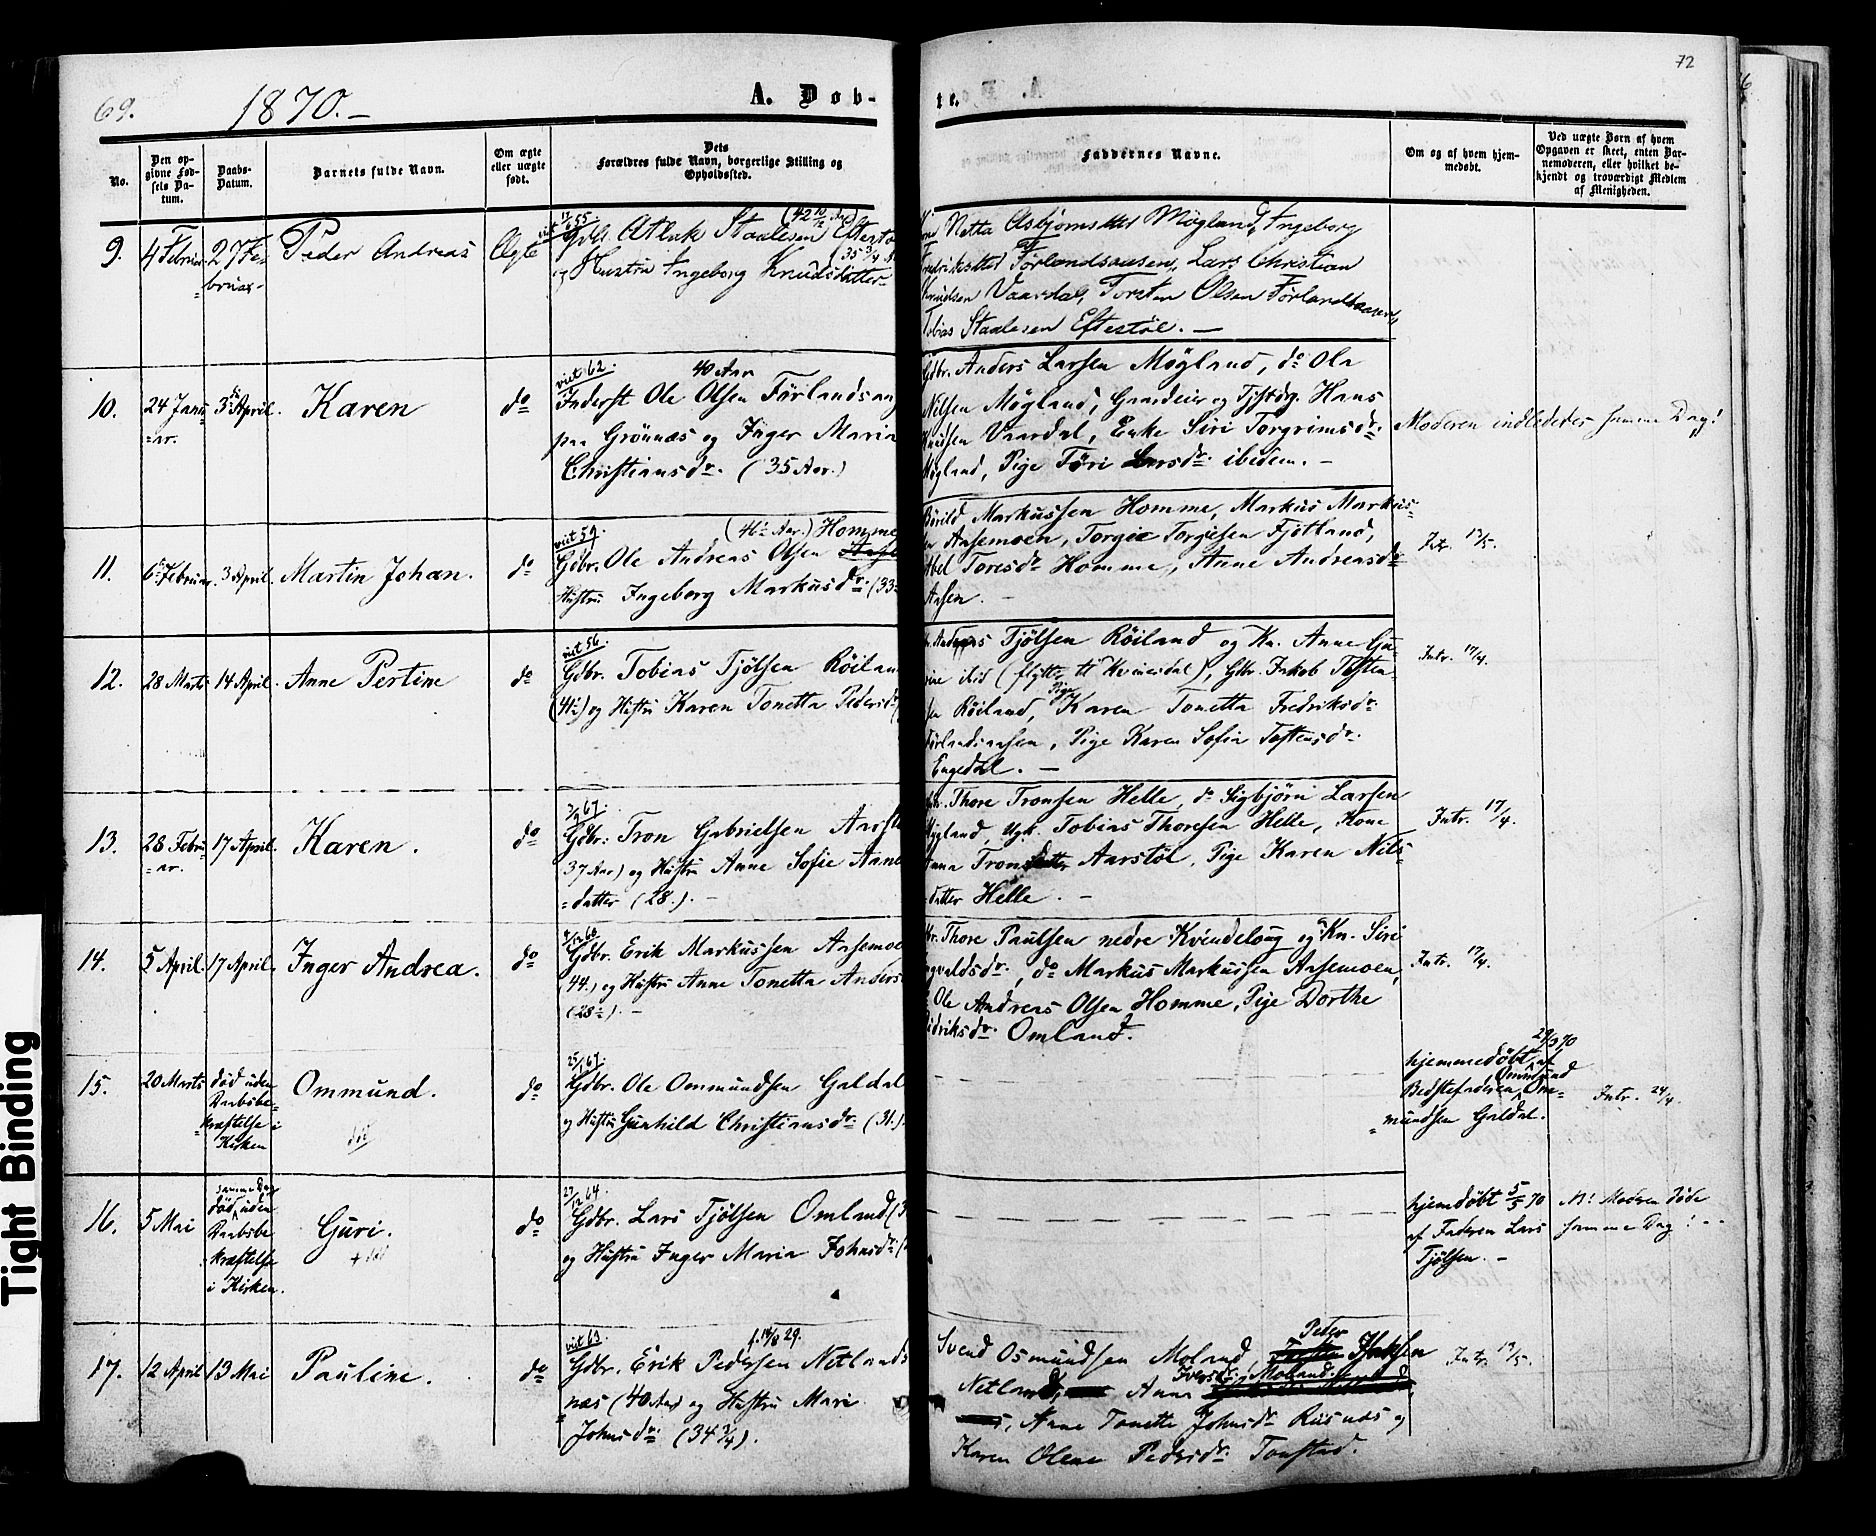 69.
1870.-
A. Døb-
te.
72
No.
Den op-
givne Fød-
sels Da-
tum.
Daabs-
Datum.
Barnets fulde Navn.
Om ægte
eller uægte
født.
Dets
Forældres fulde Navn, borgerlige Stilling og
Opholdssted.
Faddernes Navne.
Om og af hvem hjem-
medøbt.
Ved uægte Børn af hvem
Opgaven er skeet, enten Bar-
nemoderen, eller hvilket be-
kjendt og troværdigt Medlem
af Menigheden.
9.
4 Februar
27 Fe-
bruar-
Peder Andreas
Ægte
Atlak Staalesen
og Hustru Ingeborg Knudsdatter
Netta Asbjørnsdtter Møgland, Ingeborg
Fredriksdtter Førlandsaasen, Lars Christian
Knudsen Vaardal, Torsten Olsen Førlandsaasen,
Tobias Staalesen Eftestøl. -
10.
24 Janu-
=ar.
3 April.
Karen
do
viet 62.
40 Aar
Inderst Ole Olsen Førlandsaas
paa Grønnæs og Inger Maria
Christiansdr. (35 Aar.)
Gdbr. Anders Larsen Møgland, do Ola
Nilsen Møgland, Gaardeier og Hans
Knudsen Vaardal, Enke Siri Torgrimsdr.
Møgland, Pige Tøri Larsdr. ibedem. -
Moderen indlededes samme Dag!
11.
6 Februar
3 April
Martin Johan.
do
viet 59.
(46½ Aar.) Homme
Gdbr. Ole Andreas Olsen
Hustru Ingeborg Markusdr. (33
Børild Markussen Homme, Markus Markus-
Aasemoen, Torgie Torgiesen Fjotland,
Abel Toresdr. Homme, Anne Andreasdr
Aasen. -
Intr. 13/5.
12.
28 Marts
14 April.
Anne Pertine
do
viet 56
Gdbr. Tobias Tjølsen Røilan
og Hustru Karen Tonetta Pedersdr.
Anders Tjølsen Røiland og Kn. Anne Gu-
(flytter til Kvinesdal), Gbr. Jakob Tosten-
sen Røiland, Pige Karen Tonetta Fredriksdr.
Førlandsaasen, Pige Karen Sofia Tostensdr.
Engedal. -
Intr. 17/4.
13.
28 Febru-
=ar.
17 April.
Karen.
do
3/67.
Gdbr. Tron Gabrielsen Aarstø
37 Aar) og Hustru Anne Sofie Aane
=datter (28.). -
Thore Tronsen Helle, do Sigbjørn Larsen
Møgland, Ugk. Tobias Thoresen Helle, Kone
Anna Tronsdatter Aarstøl, Pige Karen Nils-
=datter Helle. -
Intr. 17/4.
14.
5 April.
17 April.
Inger Andrea.
do
Gdbr. Erik Markussen Aasemoe
(44.) og Hustru Anne Tonetta Anders
(28½). -
Thore Paulsen nedre Kvindeloug og Kn. Siri
do Markus Markussen Aasemoen,
Ole Andreas Olsen Homme, Pige Dorthe
Fidriksdr. Omland.
Intr. 17/4.
15.
20 Marts
død uden
Daabsbe-
kræftelse i
Kirken
Ommund.
død
do
25/1 67.
Gdbr. Ole Ommundsen Galdal
og Hustru Gunhild Christiansdr. (31.)
29/3 70
hjemmedøbt af
Bedstefaderen Ommund Om-
=mundsen Galdal.
Intr. 24/4.
16.
5 Mai
samme Dag
død uden
Daabsbe
kræftelse
i Kirken.
Guri.
+ død
do
27/12 64.
Gdbr. Lars Tjølsen Omland
og Hustru Inger Maria Johnsdr.
hjemdøbt 5/5 70
af Faderen Lars
Tjølsen. -
N! Modren døde
samme Dag! --
17.
12 April
13 Mai
Pauline.
do
viet 63
f. 14/8 29.
Gdbr. Erik Pedersen Netlands
=næs (40 Aar) og Hustru Mari
Johnsdr. (34¾).
Svend Osmundsen Moland, Peder
Netland, Anne Iversdr. Moland
Anne Tonette Johnsdr. Risnes og
Karen Olene Pedersdr. Tonstad.
Intr. 13/5.
Tight Binding